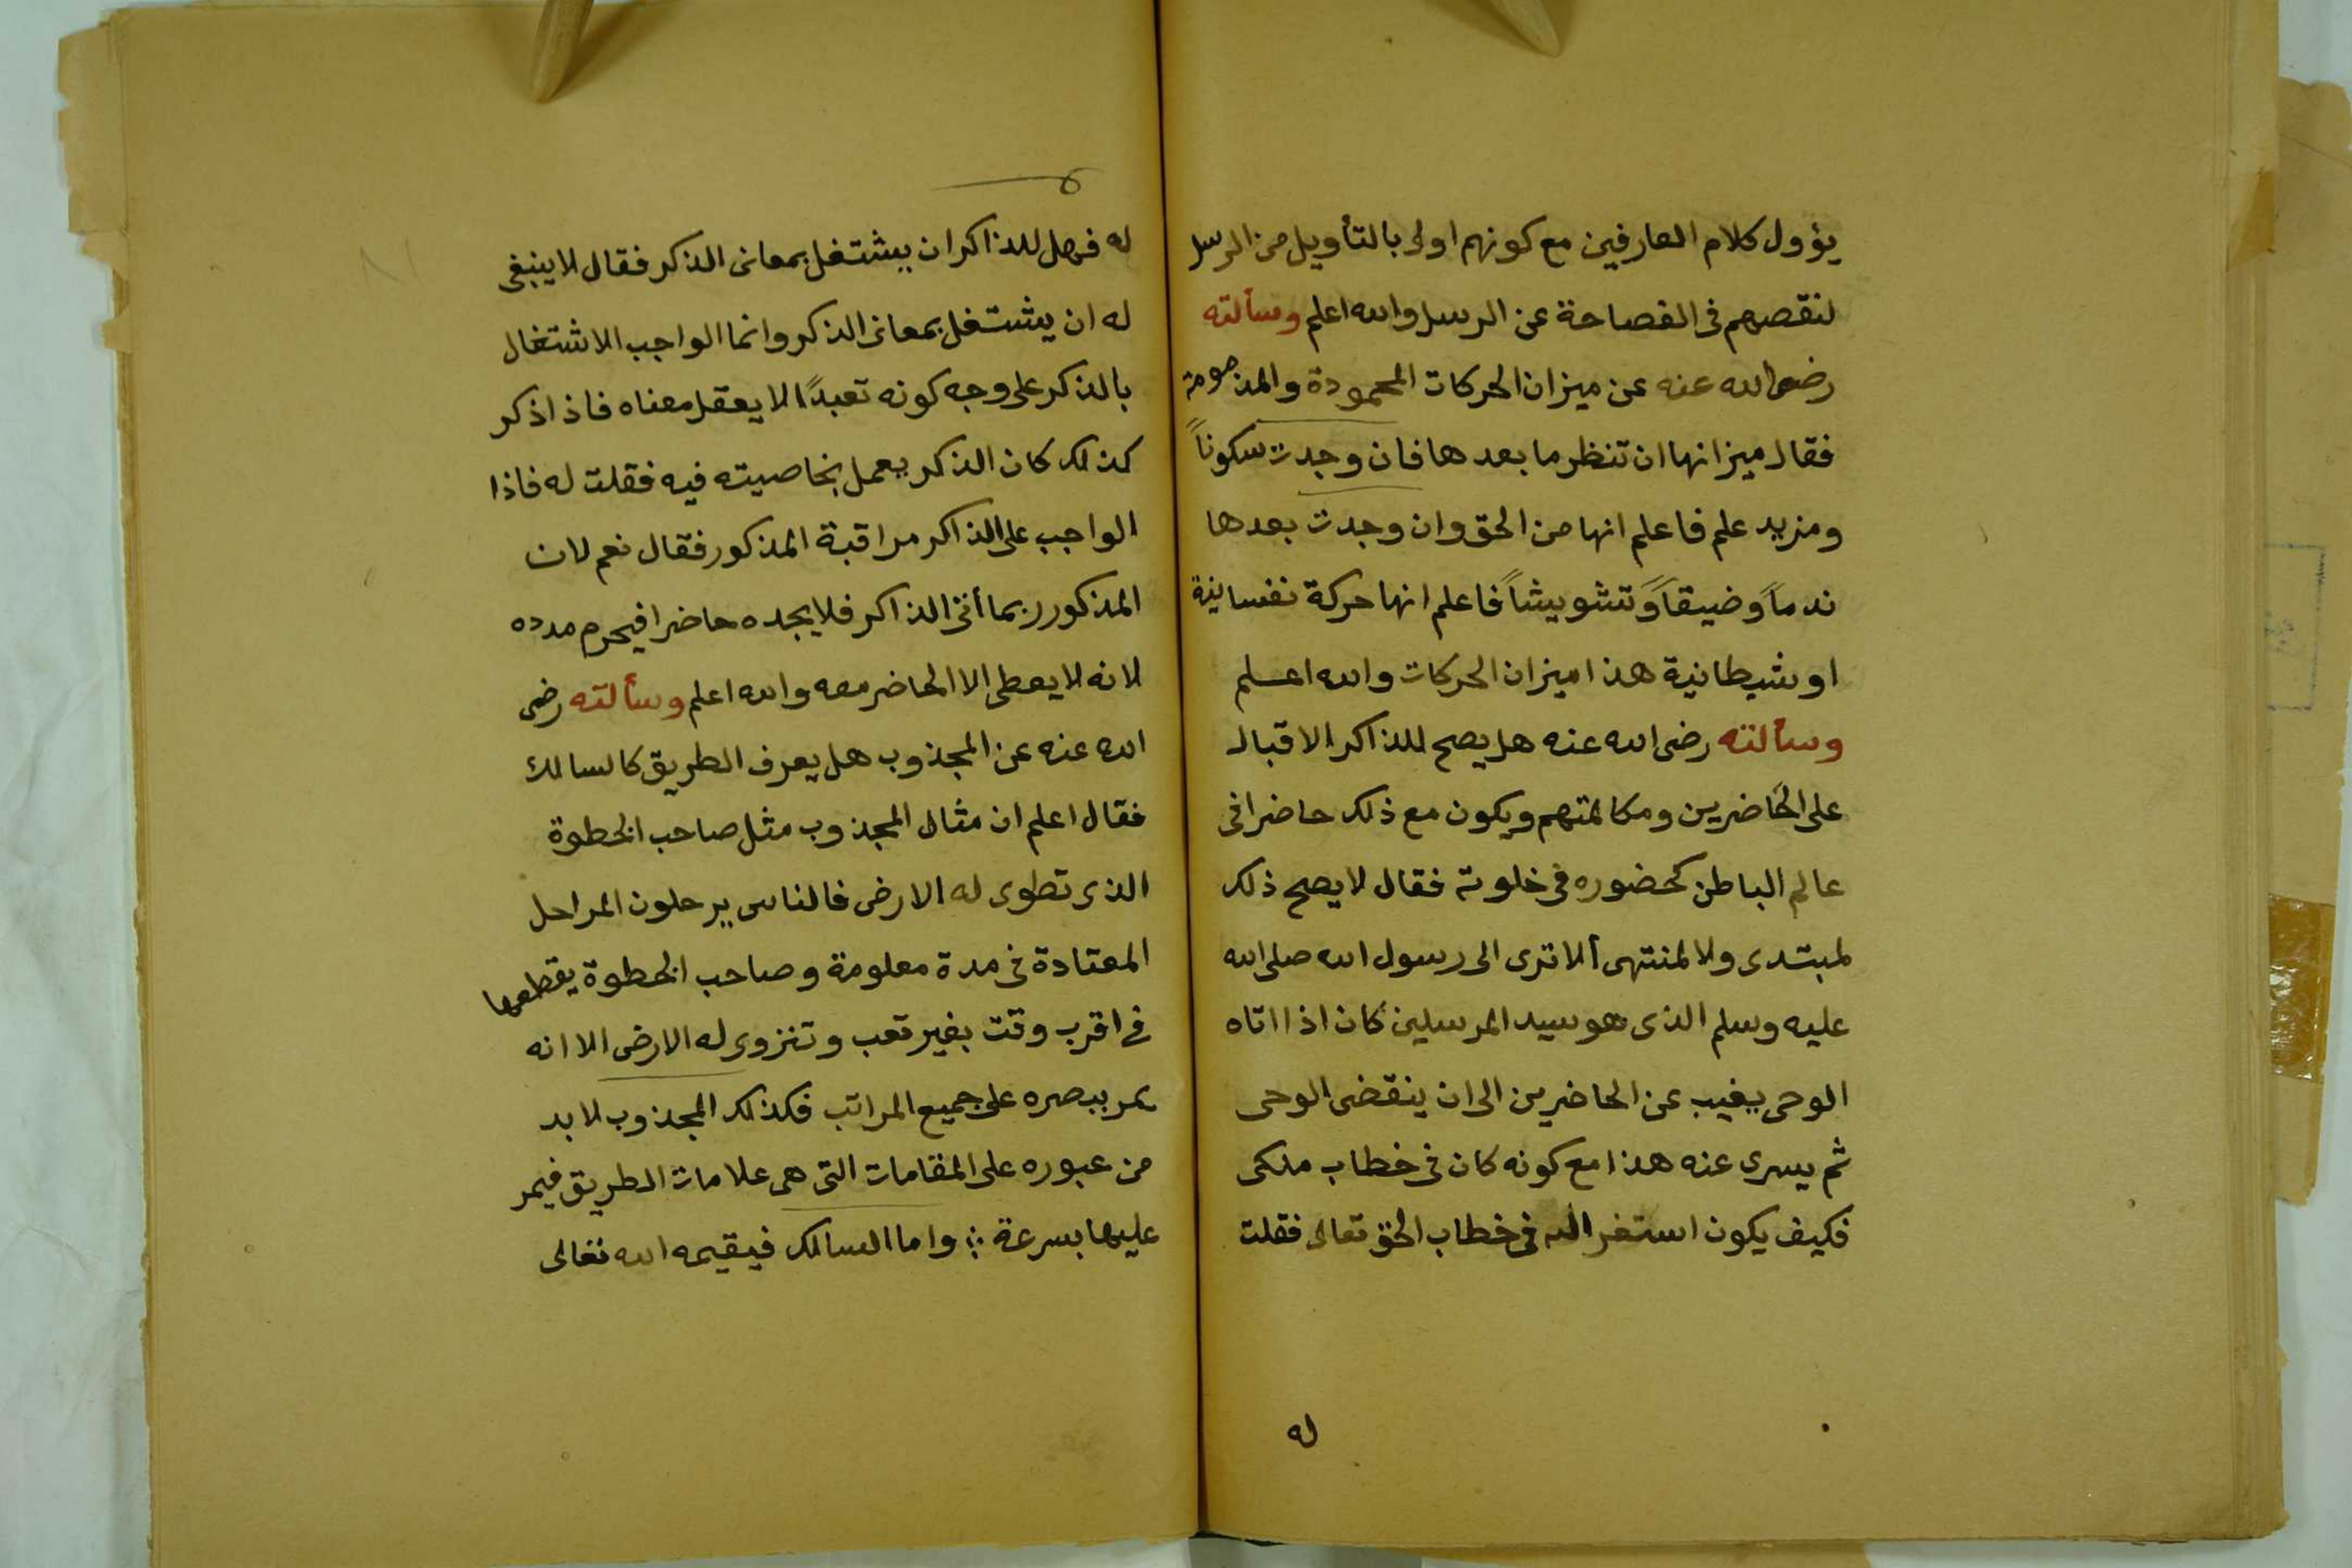 يؤول كلام العارفين مع كونهم اولى بالتأويل من الرسل
لنقصهم فى الفصاحة عن الرسل والله اعلم وسألته
رضى الله عنه عن ميزان الحركات المحمودة والمذمومة
فقال ميزانها ان تنظر ما بعدها فان وجدت سكوناً
ومزيد علم فاعلم انها من الحق وان وجدت بعدها
ندماً وضيقاً وتشويشاً فاعلم انها حركة نفسانية
او شيطانية هذا ميزان الحركات والله اعلم
وسألته رضى الله عنه هل يصح للذاكر الاقبال
على الحاضرين ومكالمتهم ويكون مع ذلك حاضرا فى
عالم الباطن كحضوره فى خلوته فقال لا يصح ذلك
لمبتدى ولا لمنتهى ألا ترى الى رسول الله صلى الله
عليه وسلم الذى هو سيد المرسلين كان اذا اتاه
الوحى يغيب عن الحاضرين الى ان ينقضى الوحى
ثم يسرى عنه هذا مع كونه كان فى خطاب ملكى
فكيف يكون استغراقه فى خطاب الحق تعالى فقلت
له
له فهل للذاكر ان يشتغل بمعانى الذكر فقال لا ينبغى
له ان يشتغل بمعانى الذكر وانما الواجب الاشتغال
بالذكر على وجه كونه تعبدًا لا يعقل معناه فاذا ذكر
كذلك كان الذكر يعمل بخاصيته فيه فقلت له فاذا
الواجب على الذاكر مراقبة المذكور فقال نعم لان
المذكور ربما أتى الذاكر فلا يجده حاضرا فيحرم مدده
لانه لا يعطى الا الحاضر معه والله اعلم وسألته رضى
الله عنه عن المجذوب هل يعرف الطريق كالسالك
فقال اعلم ان مثال المجذوب مثل صاحب الخطوة
الذى تطوى له الارض فالناس يرحلون المراحل
المعتادة فى مدة معلومة وصاحب الخطوة يقطعها
فى اقرب وقت بغير تعب وتنزوى له الارض الا انه
يمر ببصره على جميع المراتب فكذلك المجذوب لا بد
من عبوره على المقامات التى هى علامات الطريق فيمر
عليها بسرعة ∴ واما السالك فيقيمه الله تعالى